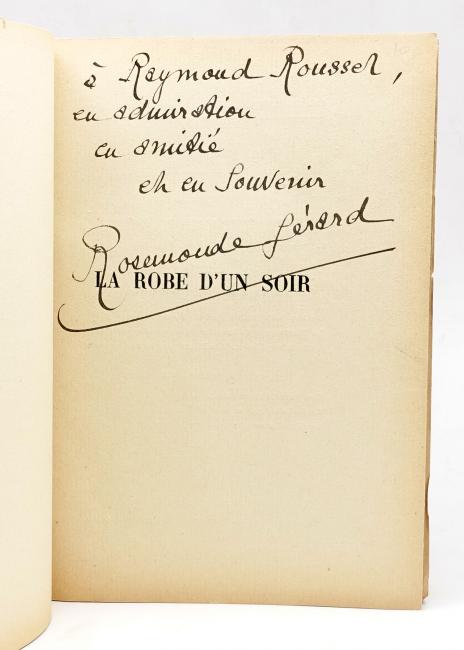 à Raymond Roussel,
en admiration
en amitié
et en Souvenir
Rosemonde Gérard
LA ROBE D'UN SOIR